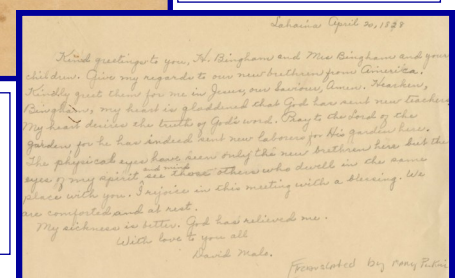 Lahaina April 2, 1828
Kind greetings to you, H. Bingham and Mrs Bingham and your
children. Give my regards to our new brethren from America.
Kindly greet them for me in Jesus, our Saviour, Amen. Hearken,
Bingham, my heart is gladdened that God has sent new teachers.
My heart desires the truth of God's word. Pray to the Lord of the
garden for he has indeed sent new laborers for His garden here.
The physical eyes have seen only the new brethren here but the
eyes of my spirit and mind see those others who dwell in the same
place with you. I rejoice in this meeting with a blessing. We
are comforted and at rest.
My sickness is better. God has relieved me.
With love to you all
David Malo.
Translated by Mary